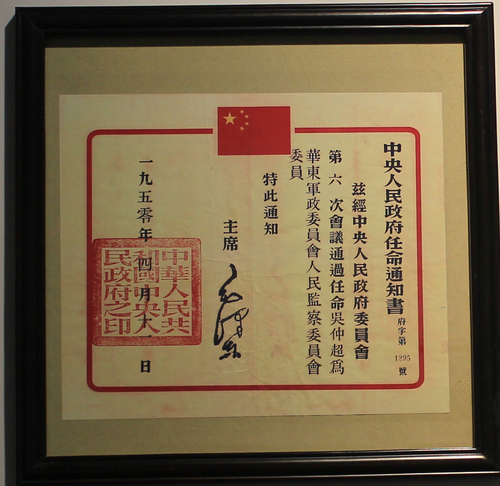 中央人民政府任命通知書 府字第1295號
茲經中央人民政府委員會
第六次會議通過任命吳仲超爲
華東軍政委員會人民監察委員會
委員
特此通知
主席 毛澤東
一九五零年四月十一日
中華人民共
和國中央人
民政府之印